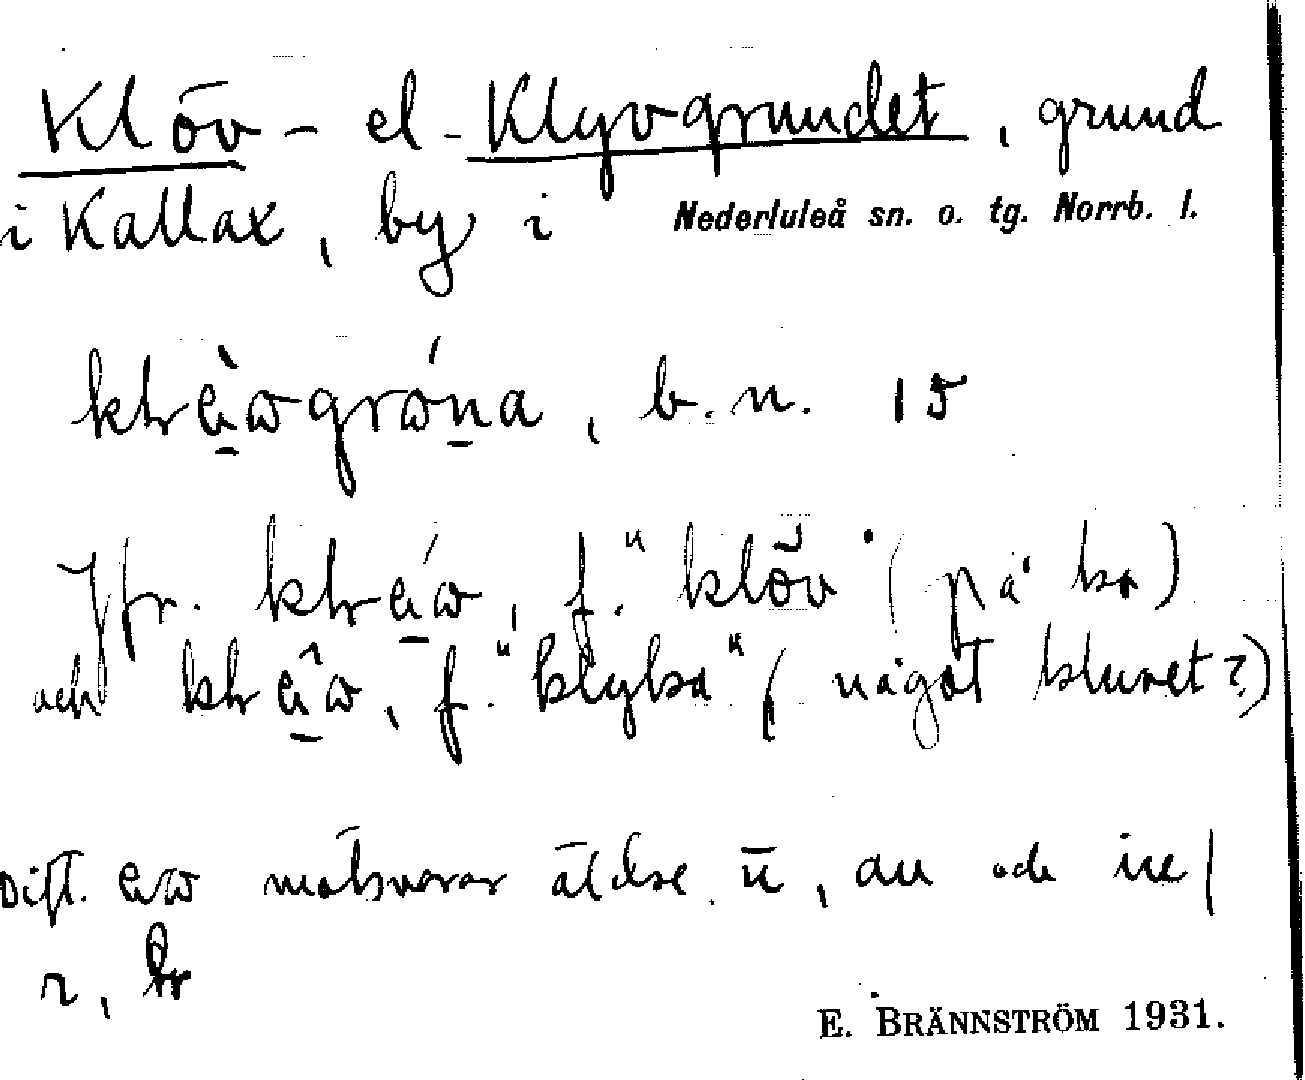 Klöv- el. Klyvgrundet, grund
i Kallax, by i Nederluleå sn. o. tg. Norrb. l.
b. n. 15
Jfr. f. "klöv" (på ko)
och f. "klyka" (något kluvet?)
Dift. motsvarar äldre ū, au och iu /
r,
E. BRÄNNSTRÖM 1931.